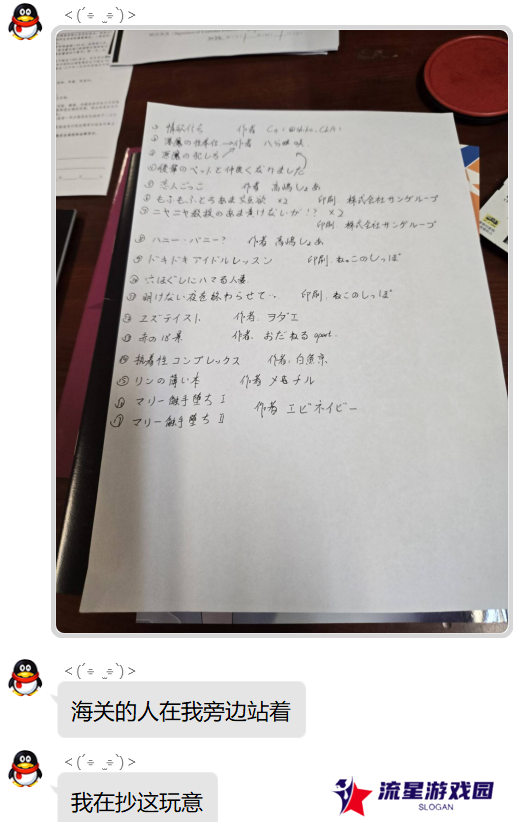 <(´ㅎ ‸ㅎ`)>
① 情欲行為 作者
② 悪魔の性奉仕 → 作者 八ら
③ 悪魔の犯し方
④ 後輩のペットと仲良くなりました
⑤ 恋人ごっこ 作者 高嶋しょあ
⑥ もふもふとろあま x2 印刷 株式会社サングループ
⑦ ニヤニヤ教授のあま 負けないが!? x2
印刷 株式会社サングループ
⑧ ハニー・バニー? 作者 高嶋しょあ
⑨ ドキドキアイドルレッスン 印刷 ねこのしっぽ
⑩ 穴ほぐしにハマる人妻
⑪ 明けない夜を終わらせて.. 印刷 ねこのしっぽ
⑫ エズテイスト 作者 ヲダエ
⑬ 赤の 果 作者 おだねる apart.
⑭ 執着性コンプレックス 作者 白原京
⑮ リンの薄い本 作者 メモチル
⑯ マリー触手堕ち I
作者 エビネイビー
⑰ マリー触手堕ち II
<(´ㅎ ‸ㅎ`)>
海关的人在我旁边站着
<(´ㅎ ‸ㅎ`)>
我在抄这玩意
流星游戏园
SLOGAN